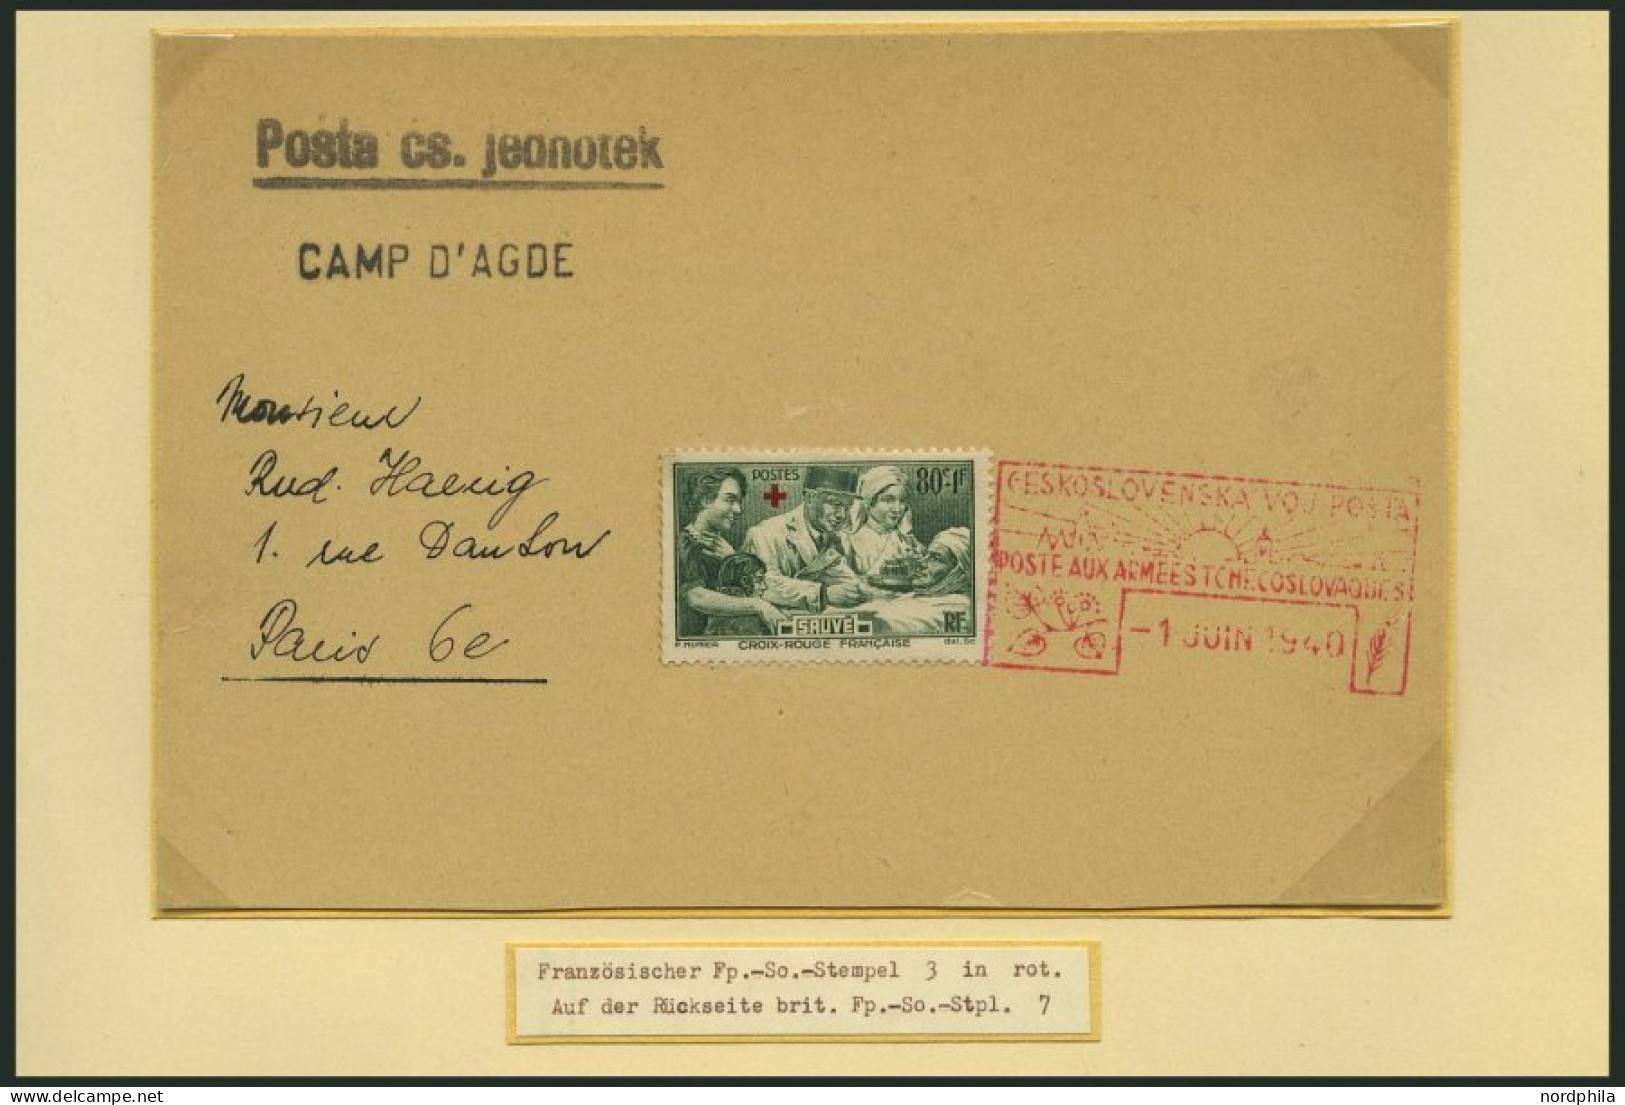 Posta čs. jednotek
CAMP D'AGDE
Monsieur
Rud. Haenig
1. rue Danton
Paris 6e
POSTES
80c+1F
SAUVE
RF
P. MUNIER CROIX-ROUGE FRANÇAISE
ČESKOSLOVENSKÁ VOJ. POSTA
POSTE AUX ARMEES TCHECOSLOVAQUES
-1 JUIN 1940
Französischer Fp.-So.-Stempel 3 in rot.
Auf der Rückseite brit. Fp.-So.-Stpl. 7
nordphila